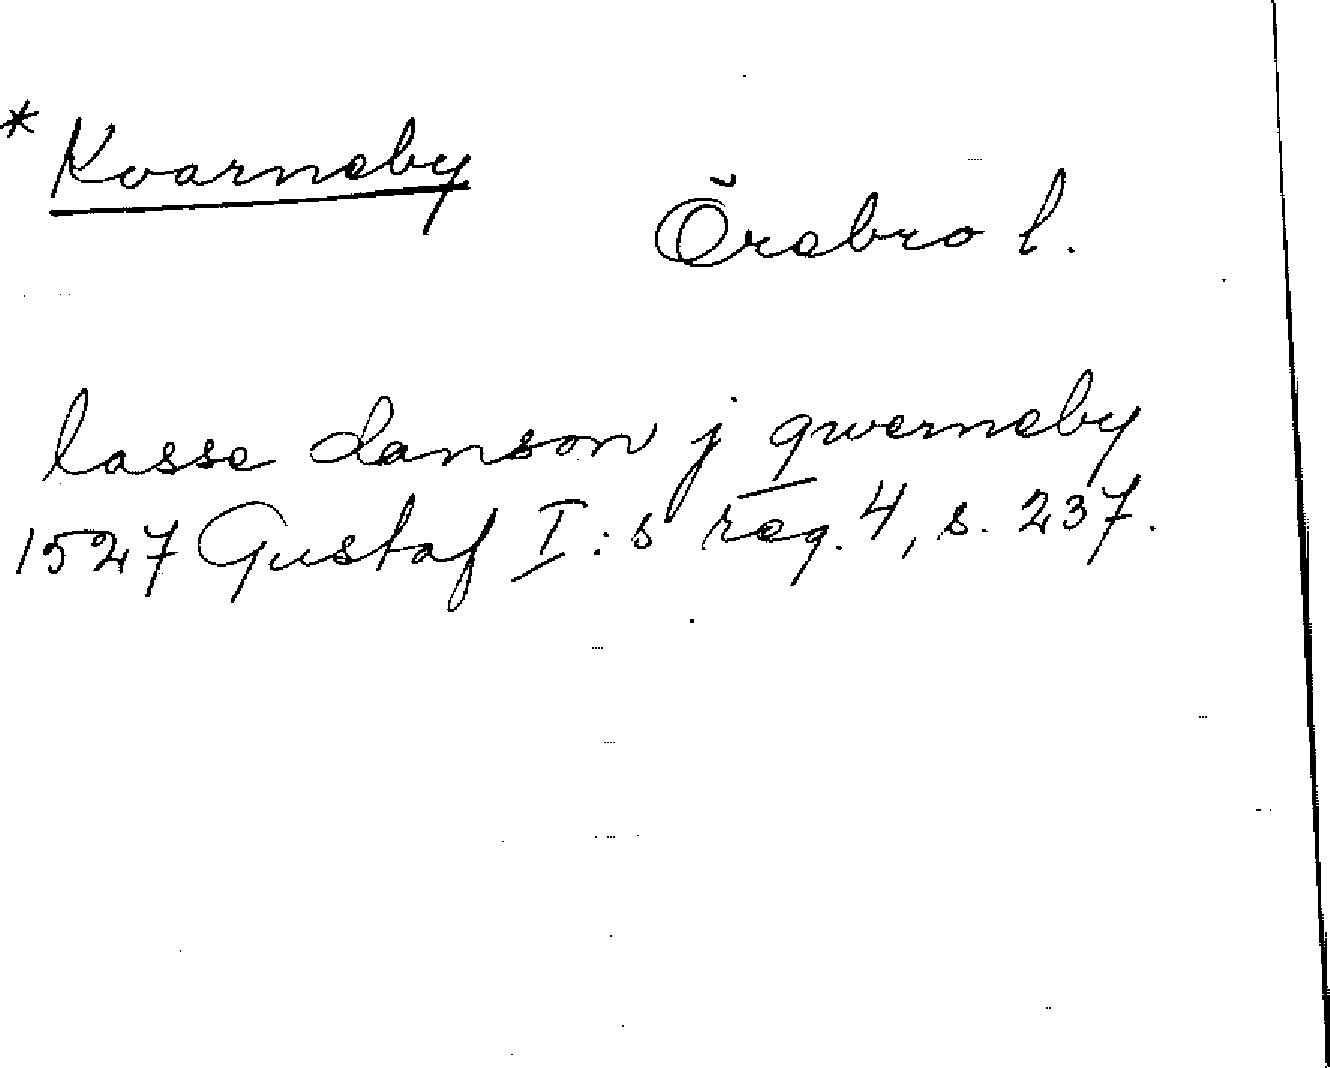 * Kvarneby
Örebro l.
lasse danson j qwerneby
1527 Gustaf I:s reg. 4, s. 237.